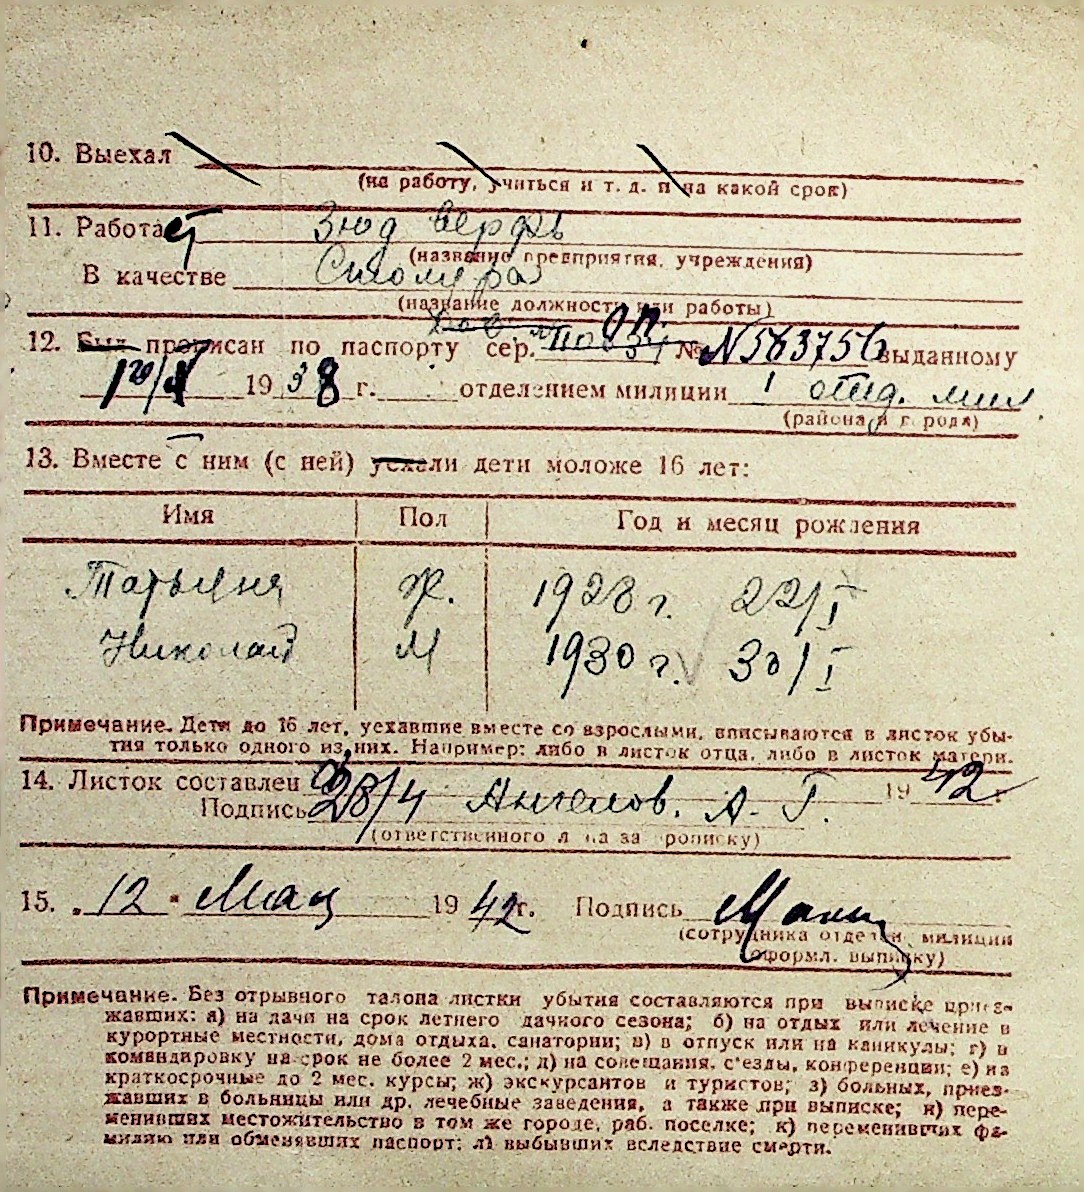 10. Выехал
(на работу, учиться и т. д. и на какой срок)
11. Работает Зюд верфь
(название предприятия, учреждения)
В качестве Столяра
(название должности или работы)
12. Был прописан по паспорту сер. № N 583756 выданному
19 38 г. отделением милиции 1 отд. мил.
(района и города)
13. Вместе с ним (с ней) уехали дети моложе 16 лет:
Имя Пол Год и месяц рождения
Татьяна Ж. 1928 г. 22/I
Николай М 1930 г. 30/I
Примечание. Дети до 16 лет, уехавшие вместе со взрослыми, вписываются в листок убы-
тия только одного из них. Например: либо в листок отца, либо в листок матери.
14. Листок составлен 28/4 19 42 г.
Подпись Ангелов. А. Г.
(ответственного лица за прописку)
15. „ 12 " Мая 19 42 г. Подпись
(сотрудника отделен. милиции
оформл. выписку)
Примечание. Без отрывного талона листки убытия составляются при выписке приез-
жавших: а) на дачи на срок летнего дачного сезона; б) на отдых или лечение в
курортные местности, дома отдыха, санатории; в) в отпуск или на каникулы; г) в
командировку на срок не более 2 мес.; д) на совещания, съезды, конференции; е) на
краткосрочные до 2 мес. курсы; ж) экскурсантов и туристов; з) больных, приез-
жавших в больницы или др. лечебные заведения, а также при выписке; и) пере-
менивших местожительство в том же городе, раб. поселке; к) переменивших фа-
милию или обменявших паспорт; л) выбывших вследствие смерти.